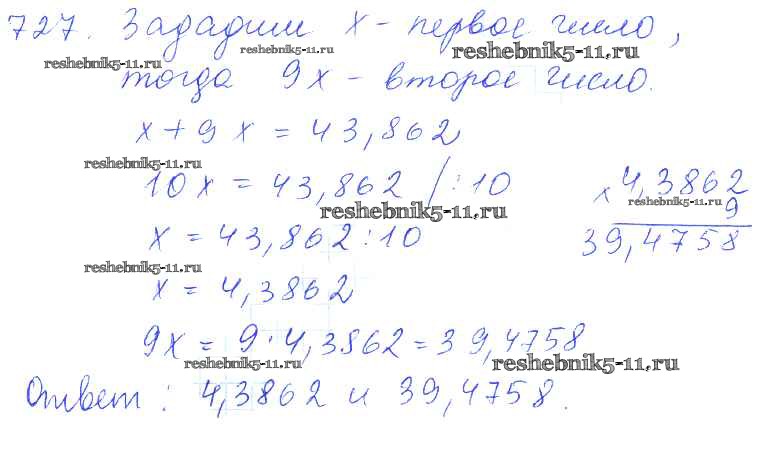 727. Зададим x - первое число,
reshebnik5-11.ru
reshebnik5-11.ru
reshebnik5-11.ru
тогда 9x - второе число.
x + 9x = 43,862
reshebnik5-11.ru
10x = 43,862 / : 10
reshebnik5-11.ru
x = 43,862 : 10
reshebnik5-11.ru
x = 4,3862
x 4,3862
reshebnik5-11.ru
9
39,4758
9x = 9 · 4,3862 = 39,4758
reshebnik5-11.ru
reshebnik5-11.ru
Ответ : 4,3862 и 39,4758.